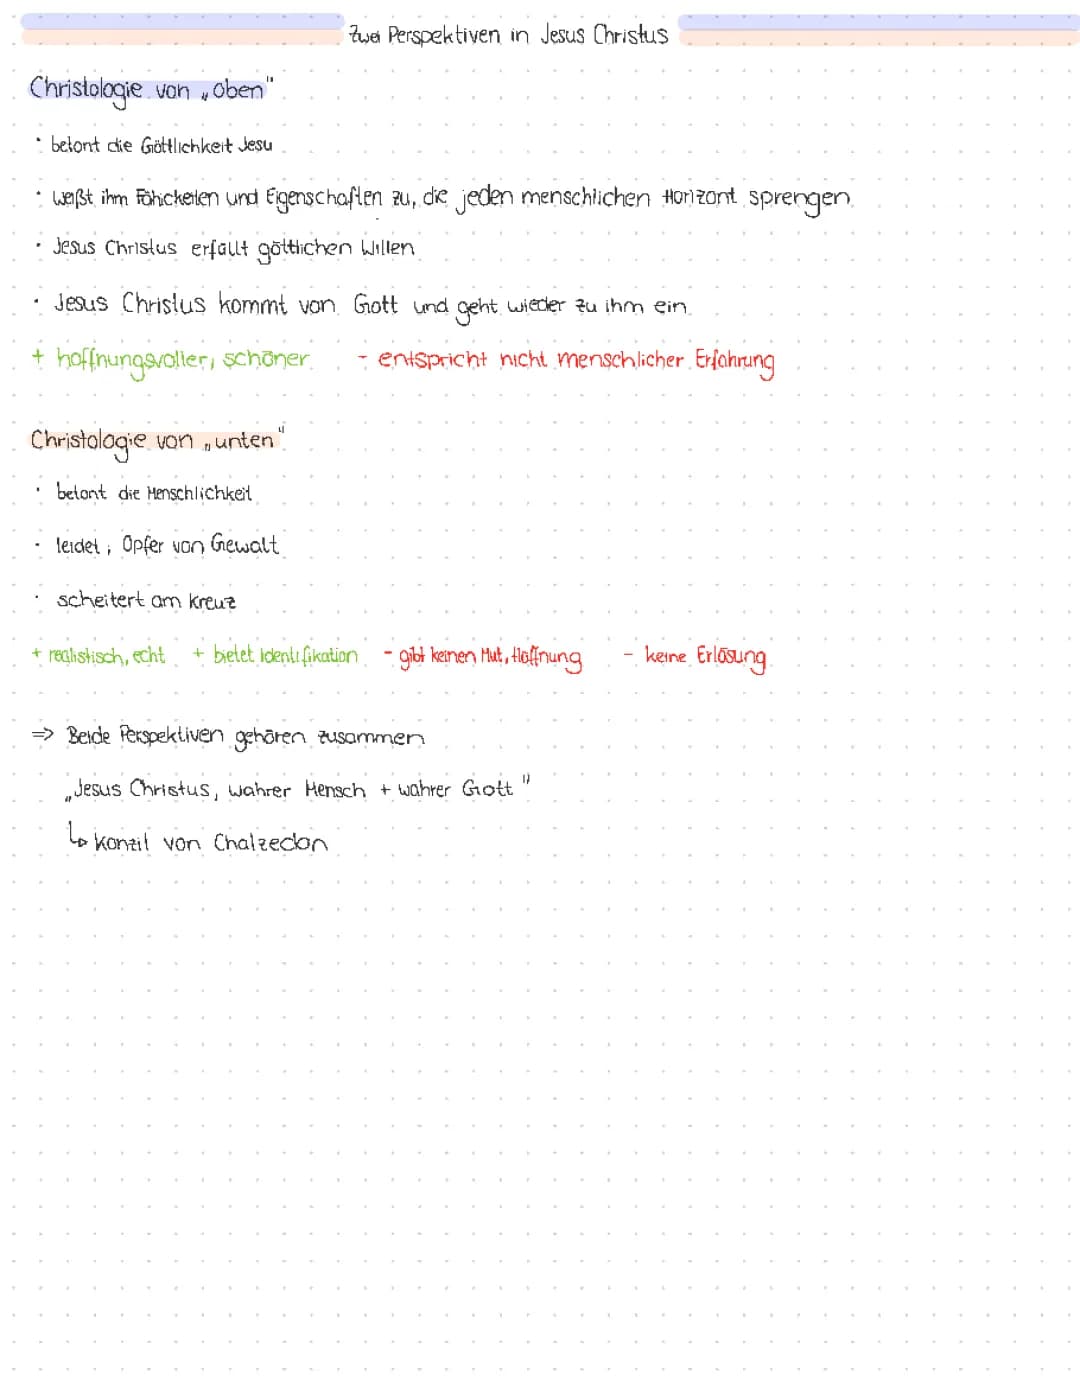 Zwei Perspektiven in Jesus Christus
Christologie von „oben"
· betont die Göttlichkeit Jesu
· weißt ihm Fähickeiten und Eigenschaften zu, die jeden menschlichen Horizont sprengen
· Jesus Christus erfüllt göttlichen Willen
· Jesus Christus kommt von Gott und geht wieder zu ihm ein
+ hoffnungsvoller, schöner - entspricht nicht menschlicher Erfahrung
Christologie von „unten"
· betont die Menschlichkeit
· leidet, Opfer von Gewalt
· scheitert am Kreuz
+ realistisch, echt + bietet Identifikation - gibt keinen Mut, Hoffnung - keine Erlösung
=> Beide Perspektiven gehören zusammen
„Jesus Christus, wahrer Mensch + wahrer Gott"
↳ Konzil von Chalzedon